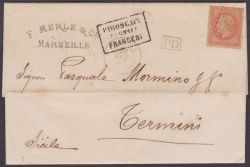 F. MERLE & Cie
MARSEILLE
PIROSCAFI
POSTALI
FRANCESI
PD
Signori Pasquale Mormino & fo
Termini
Sicile